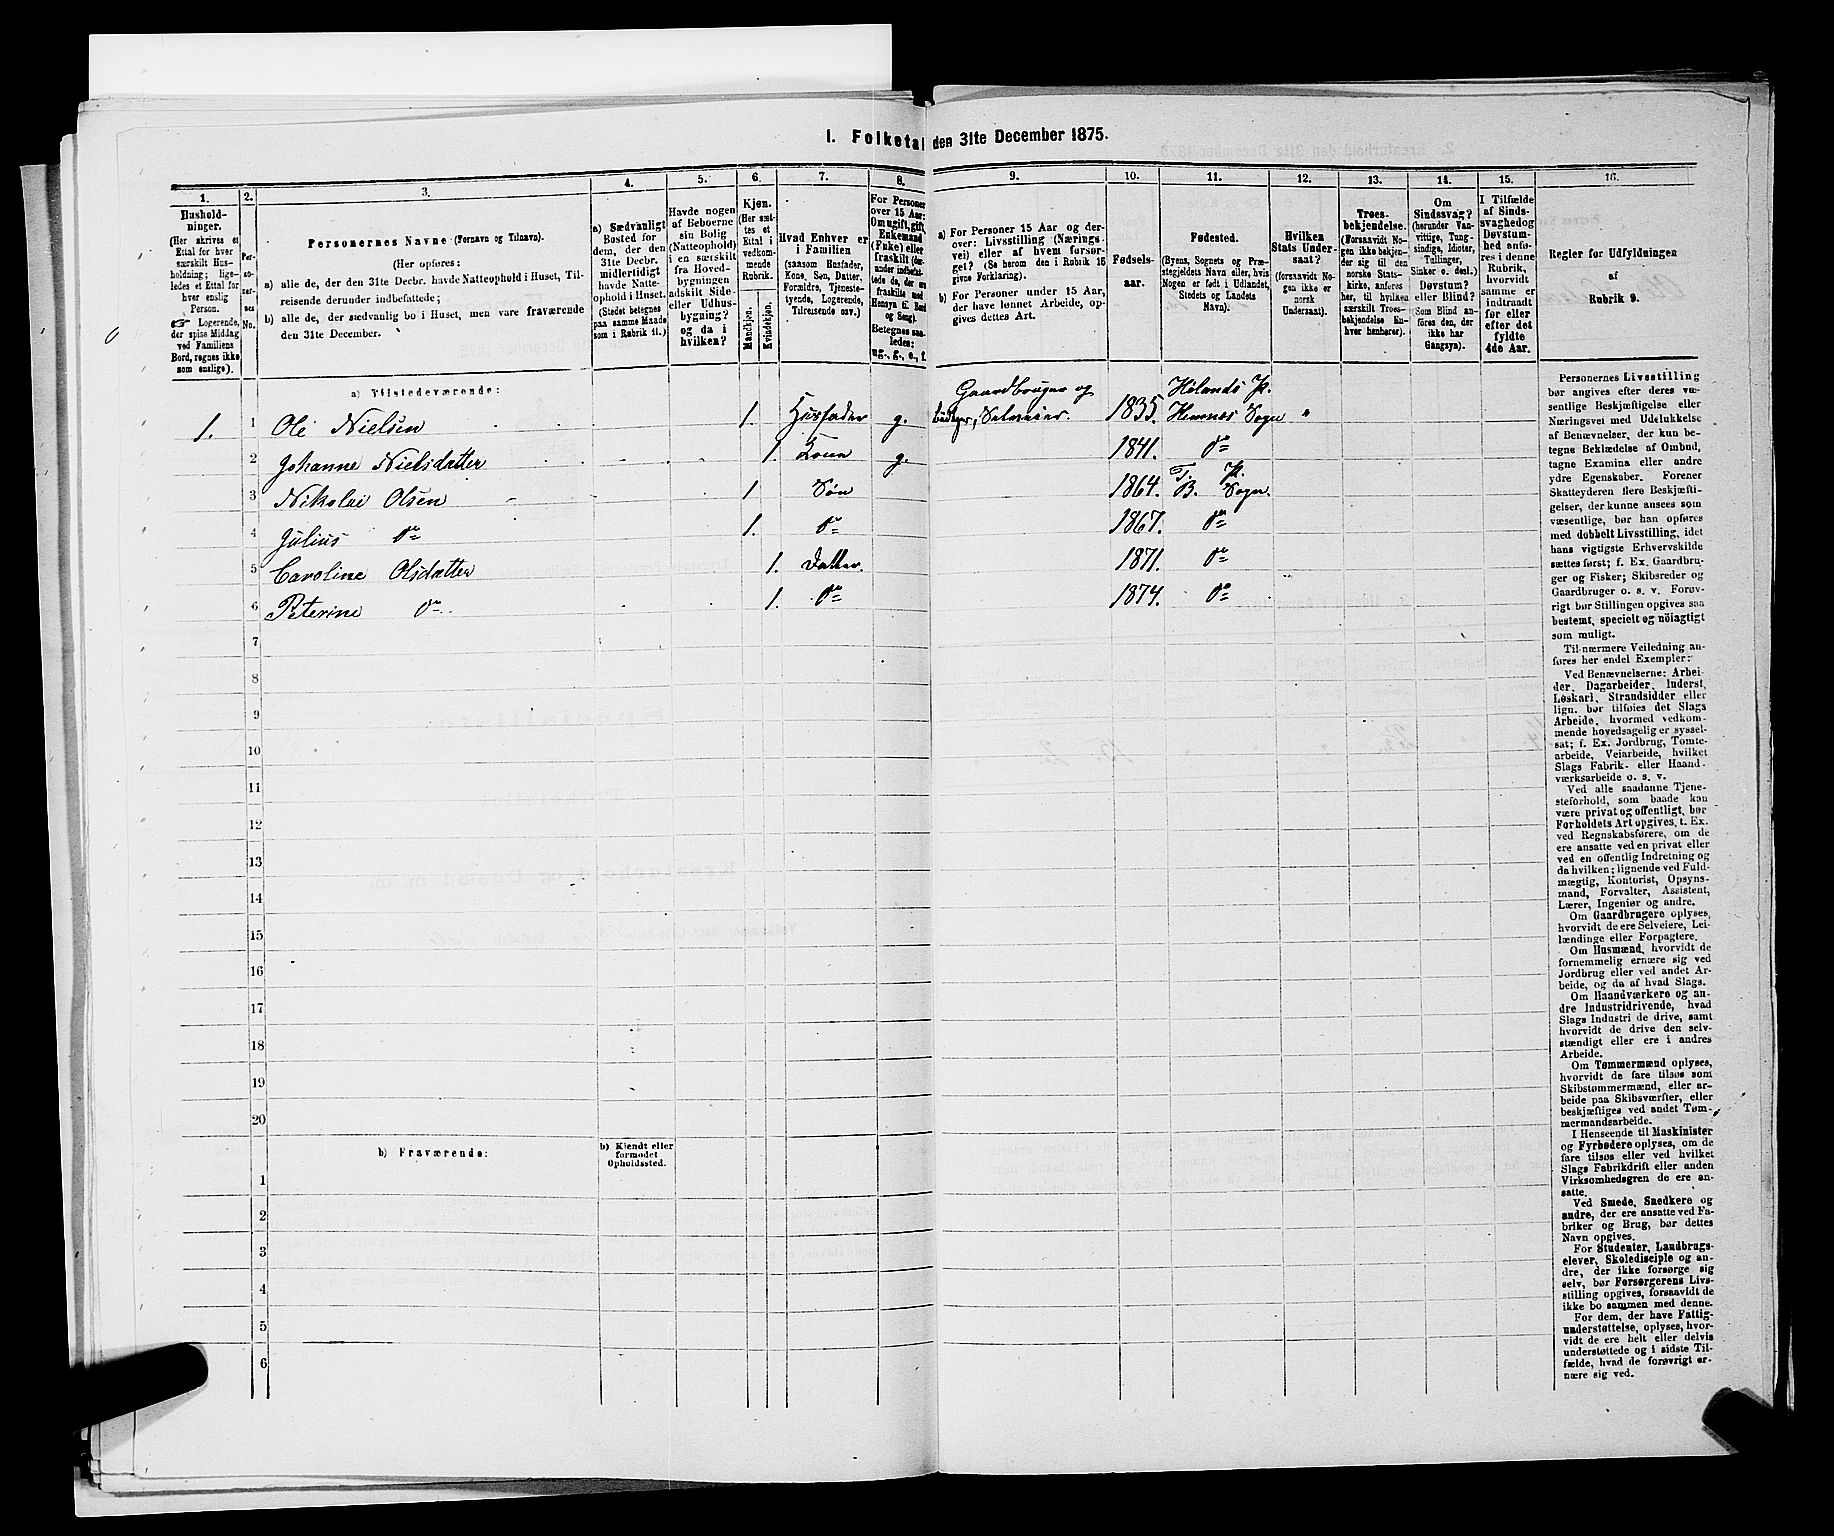 I. Folketal den 31te December 1875.
1.
Hushold-
ninger.
(Her skrives et
Ettal for hver
særskilt Hus-
holdning; lige-
ledes et Ettal for
hver enslig
Person.
☞ Logerende,
der spise Middag
ved Familiens
Bord, regnes ikke
som enslige).
2.
Per-
so-
ner-
nes
No.
3.
Personernes Navne (Fornavn og Tilnavn).
(Her opføres:
a) alle de, der den 31te Decbr. havde Natteophold i Huset, Til-
reisende derunder indbefattede;
b) alle de, der sædvanlig bo i Huset, men vare fraværende
den 31te December.
4.
a) Sædvanligt
Bosted for
dem, der den
31te Decbr.
midlertidigt
havde Natte-
ophold i Huset.
(Stedet betegnes
paa samme Maade
som i Rubrik 11.)
5.
Havde nogen
af Beboerne
sin Bolig
(Natteophold)
i en særskilt
fra Hoved-
bygningen
adskilt Side-
eller Udhus-
bygning?
og da i
hvilken?
6.
Kjøn.
(Her sæt-
tes et
Ettal i
vedkom-
mende
Rubrik.
Mandkjøn.
Kvindekjøn.
7.
Hvad Enhver er
i Familien
(saasom Husfader,
Kone, Søn, Datter,
Forældre, Tjeneste-
tyende, Logerende,
Tilreisende osv.)
8.
For Personer
over 15 Aar:
Om ugift, gift,
Enkemand
(Enke) eller
fraskilt (der-
under indbefat-
tede de, der ere
fraskilte med
Hensyn til Bord
og Seng).
Betegnes saa-
ledes:
ug., g., e., f.
9.
a) For Personer 15 Aar og der-
over: Livsstilling (Nærings-
vei) eller af hvem forsør-
get? (Se herom den i Rubrik 16
givne Forklaring).
b) For Personer under 15 Aar,
der have lønnet Arbeide, op-
gives dettes Art.
10.
Fødsels-
aar.
11.
Fødested.
(Byens, Sognets og Præ-
stegjeldets Navn eller, hvis
Nogen er født i Udlandet,
Stedets og Landets
Navn).
12.
Hvilken
Stats Under-
saat?
(forsaavidt No-
gen ikke er
norsk
Undersaat).
13.
Troes-
bekjendelse.
(Forsaavidt No-
gen ikke bekjen-
der sig til den
norske Stats-
kirke, anføres
her, til hvilken
særskilt Troes-
bekjendelse En-
hver henhører).
14.
Om
Sindssvag?
(herunder Van-
vittige, Tung-
sindige, Idioter,
Tullinger,
Sinker o. desl.)
Døvstum?
eller Blind?
(Som Blind an-
føres den, der
ikke har
Gangsyn).
15.
I Tilfælde
af Sinds-
svaghed og
Døvstum-
hed anfø-
res i denne
Rubrik,
hvorvidt
samme er
indtraadt
før eller
efter det
fyldte
4de Aar.
16.
Regler for Udfyldningen
af
Rubrik 9.
a) Tilstedeværende:
1. 1 Ole Nielsen 1. Husfader g. Gaardbruger og Selveier. 1835. Hølands P. Hemnes Sogn "
2 Johanne Nielsdatter 1. Kone g. 1841. Do
3 Nikolai Olsen 1 Søn 1864. T. P. B. Sogn.
4 Julius Do 1. Do 1867. Do
5 Caroline Olsdatter 1. Datter. 1871. Do
6 Peterine Do 1. Do 1874. Do
7
8
9
10
11
12
13
14
15
16
17
18
19
20
b) Fraværende:
b) Kjendt eller
formodet
Opholdssted.
1
2
3
4
5
6
Personernes Livsstilling
bør angives efter deres væ-
sentlige Beskjæftigelse eller
Næringsvei med Udelukkelse
af Benævnelser, der kun be-
tegne Beklædelse af Ombud,
tagne Examina eller andre
ydre Egenskaber. Forener
Skatteyderen flere Beskjæfti-
gelser, der kunne ansees som
væsentlige, bør han opføres
med dobbelt Livsstilling, idet
hans vigtigste Erhvervskilde
sættes først; f. Ex. Gaardbru-
ger og Fisker; Skibsreder og
Gaardbruger o. s. v. Forøv-
rigt bør Stillingen opgives saa
bestemt, specielt og nöiagtigt
som muligt.
Til nærmere Veiledning an-
føres her endel Exempler:
Ved Benævnelserne: Arbei-
der, Dagarbeider, Inderst,
Løskarl, Strandsidder eller
lign. bør tilføies det Slags
Arbeide, hvormed vedkom-
mende hovedsagelig er syssel-
sat; f. Ex. Jordbrug, Tomte-
arbeide, Veiarbeide, hvilket
Slags Fabrik- eller Haand-
værksarbeide o. s. v.
Ved alle saadanne Tjene-
steforhold, som baade kan
være privat og offentligt, bør
Forholdets Art opgives, t. Ex.
ved Regnskabsførere, om de
ere ansatte ved en privat eller
ved en offentlig Indretning og
da hvilken; lignende ved Fuld-
mægtig, Kontorist, Opsyns-
mand, Forvalter, Assistent,
Lærer, Ingeniør og andre.
Om Gaardbrugere oplyses,
hvorvidt de ere Selveiere, Lei-
lændinge eller Forpagtere.
Om Husmænd, hvorvidt de
fornemmelig ernære sig ved
Jordbrug eller ved andet Ar-
beide, og da af hvad Slags.
Om Haandværkere og an-
dre Industridrivende, hvad
Slags Industri de drive, samt
hvorvidt de drive den selv-
stændigt eller ere i andres
Arbeide.
Om Tømmermænd oplyses,
hvorvidt de fare tilsøs som
Skibstømmermænd, eller ar-
beide paa Skibsværfter, eller
beskjæftiges ved andet Tøm-
mermandsarbeide.
I Henseende til Maskinister
og Fyrbødere oplyses, om de
fare tilsøs eller ved hvilket
Slags Fabrikdrift eller anden
Virksomhedsgren de ere an-
satte.
Ved Smede, Snedkere og
andre, der ere ansatte ved Fa-
briker og Brug, bør dettes
Navn opgives.
For Studenter, Landbrugs-
elever, Skoledisciple og an-
dre, der ikke forsørge sig
selv, bør Forsørgerens Livs-
stilling opgives, forsaavidt de
ikke bo sammen med denne.
For dem, der have Fattig-
understøttelse, oplyses, hvor-
vidt de ere helt eller delvis
understøttede og i sidste Til-
fælde, hvad de forøvrigt er-
nære sig ved.